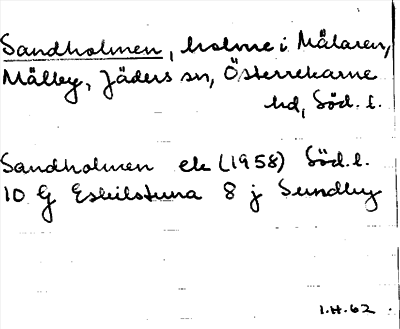 Sandholmen, holme i Mälaren,
Mälby, Jäders sn, Österrekarne
hd, Söd. l.
Sandholmen ek (1958) Söd. l.
10 G Eskilstuna 8 j Sundby
I.H.62